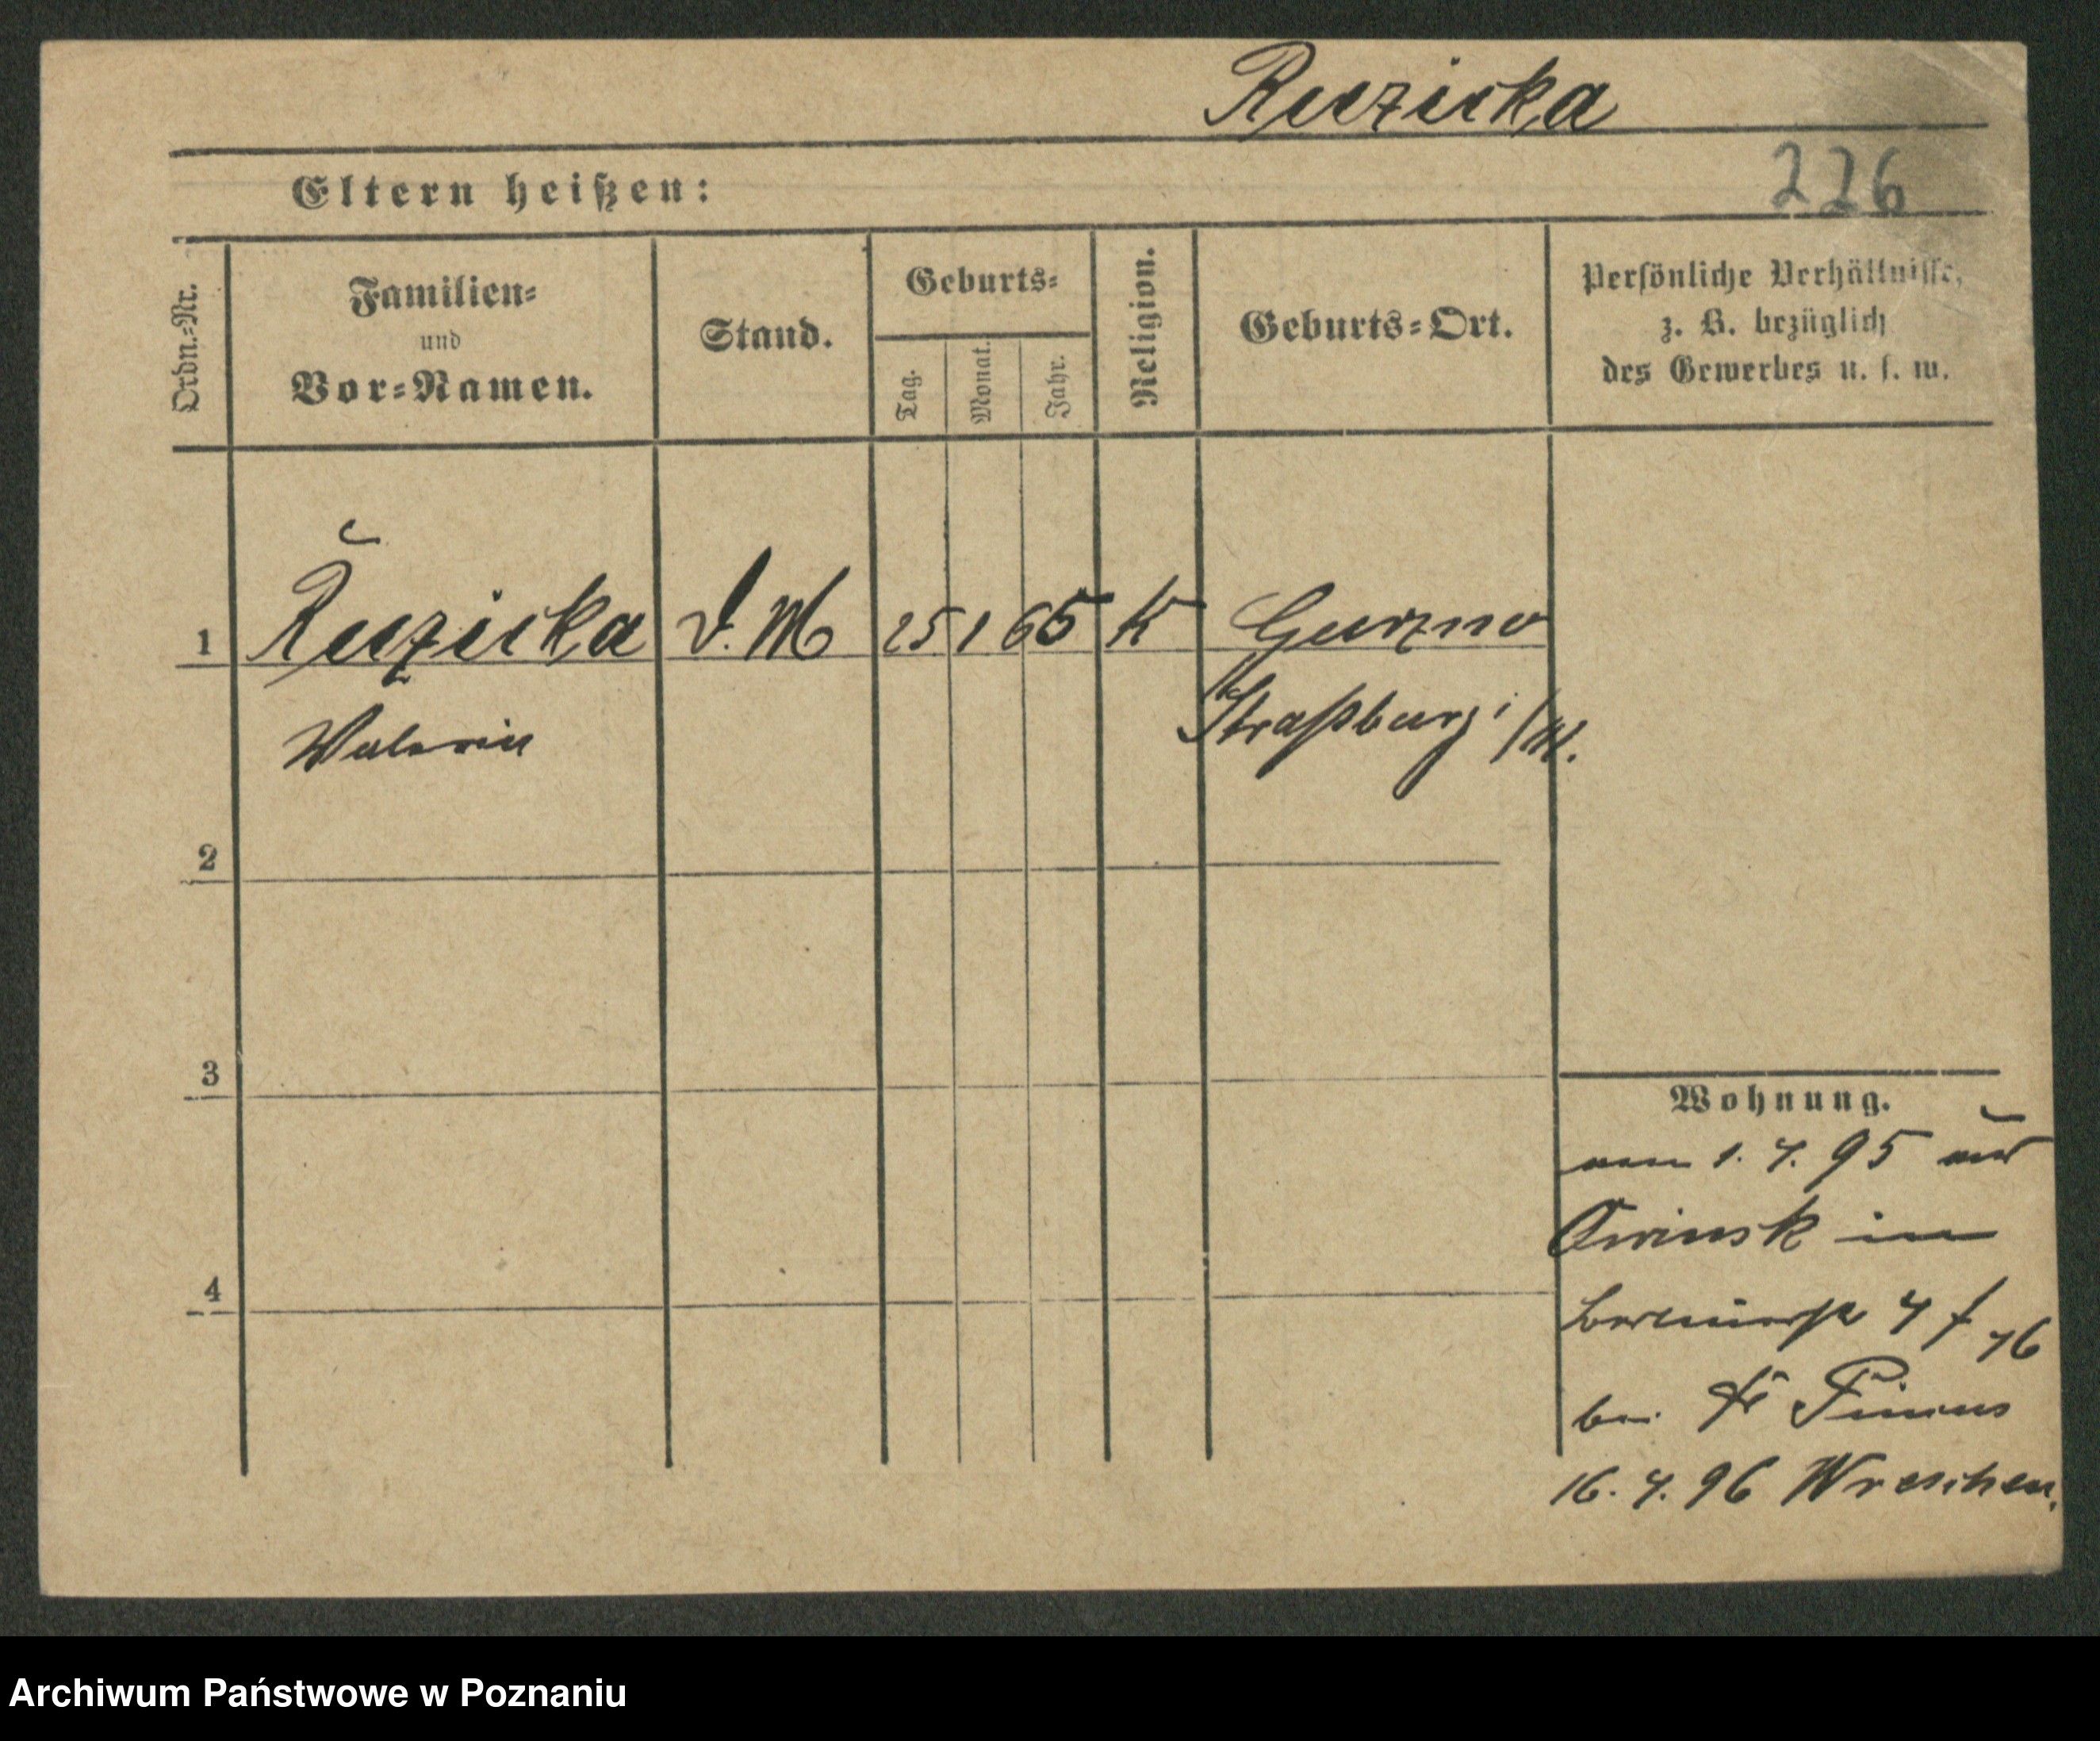 Ruzicka
226
Eltern heißen:
Ordn.-Nr.
Familien-
und
Vor-Namen.
Stand.
Geburts-
Tag.
Monat.
Jahr.
Religion.
Geburts-Ort.
Persönliche Verhältnisse,
z. B. bezüglich
des Gewerbes u. s. w.
1 Ruzicka D. M 25 1 65 K Gurzno
Valeria
Straßburg i/W.
2
3
4
Wohnung.
1. 4. 95 aus
Owinsk in
4
bei Fr Pincus
16. 4. 96 Wreschen.
Archiwum Państwowe w Poznaniu